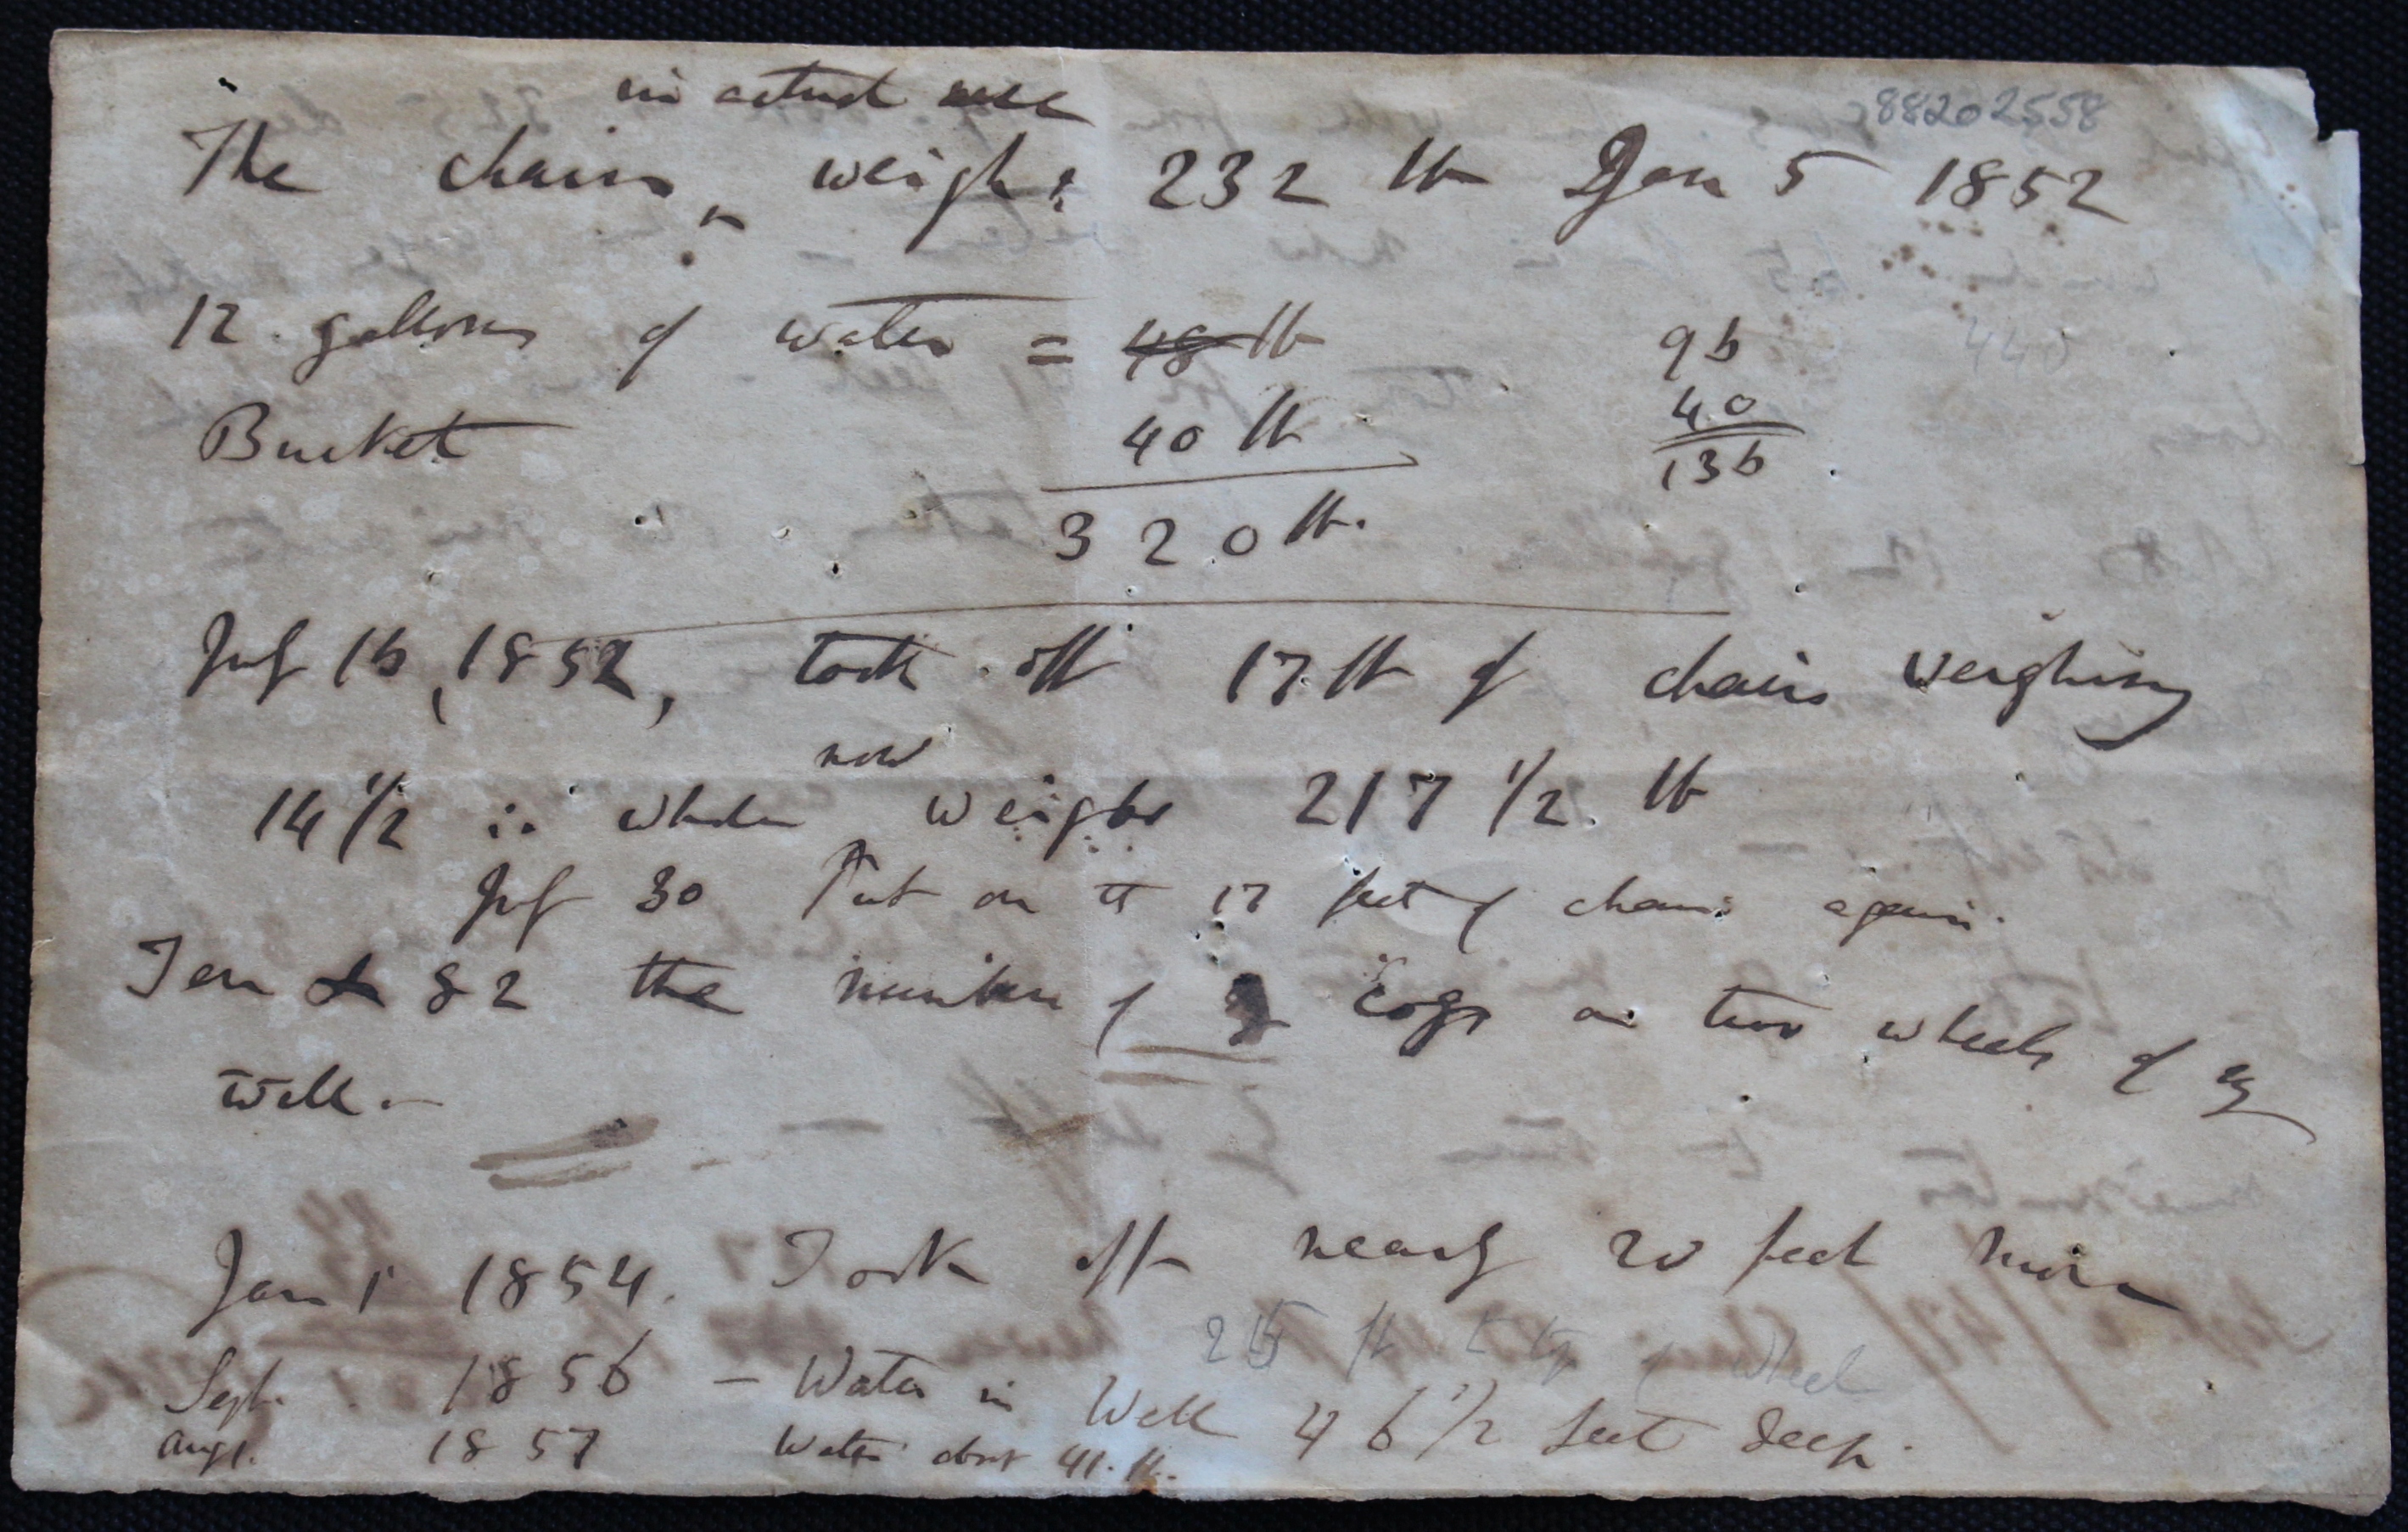 88202558
in actual use
The chain ‸ weighs 232 lb Jan 5 1852
12 gallons of water = 48 lb 96
Bucket 40 lb 40
136
320 lb.
July 16, 1852, took off 17 ft of chain weighing
now
14 1/2 ∴ whole weighs 217 1/2 lb
July 30 Put on the 17 feet of chain again.
Jan 82 the number of cogs on two wheels of
well.—
Jan 1 1854. Took off nearly 20 feet more
ft to top of wheel
Sept. 1856 — Water in Well 46 1/2 feet deep.
Augt. 1857 Water about 41. ft.